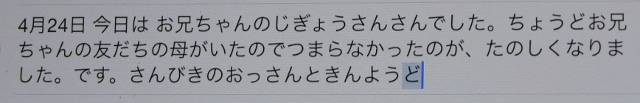 4月24日 今日は お兄ちゃんのじぎょうさんさんでした。ちょうどお兄
ちゃんの友だちの母がいたのでつまらなかったのが、たのしくなりま
した。です。さんびきのおっさんときんようど